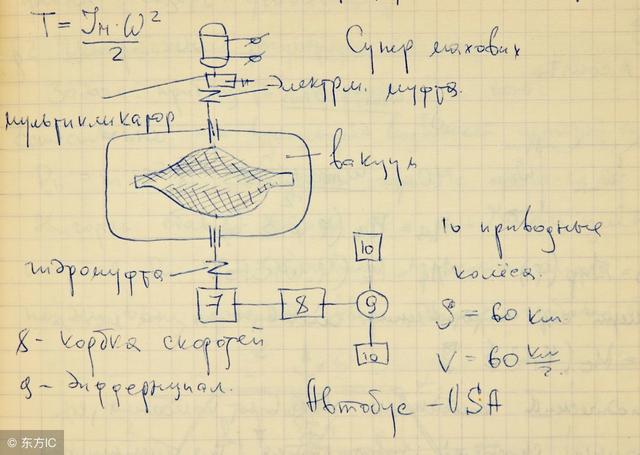 T = Jм·ω²
2
Супер маховик
Электрм. муфта.
мультипликатор
вакуум
10 приводные
колёса.
гидромуфта
10
7
8
9
10
S = 60 км
8 - кор бка скоростей
V = 60 км/г
9 - Дифференциал.
Автобус - USA
© 东方IC